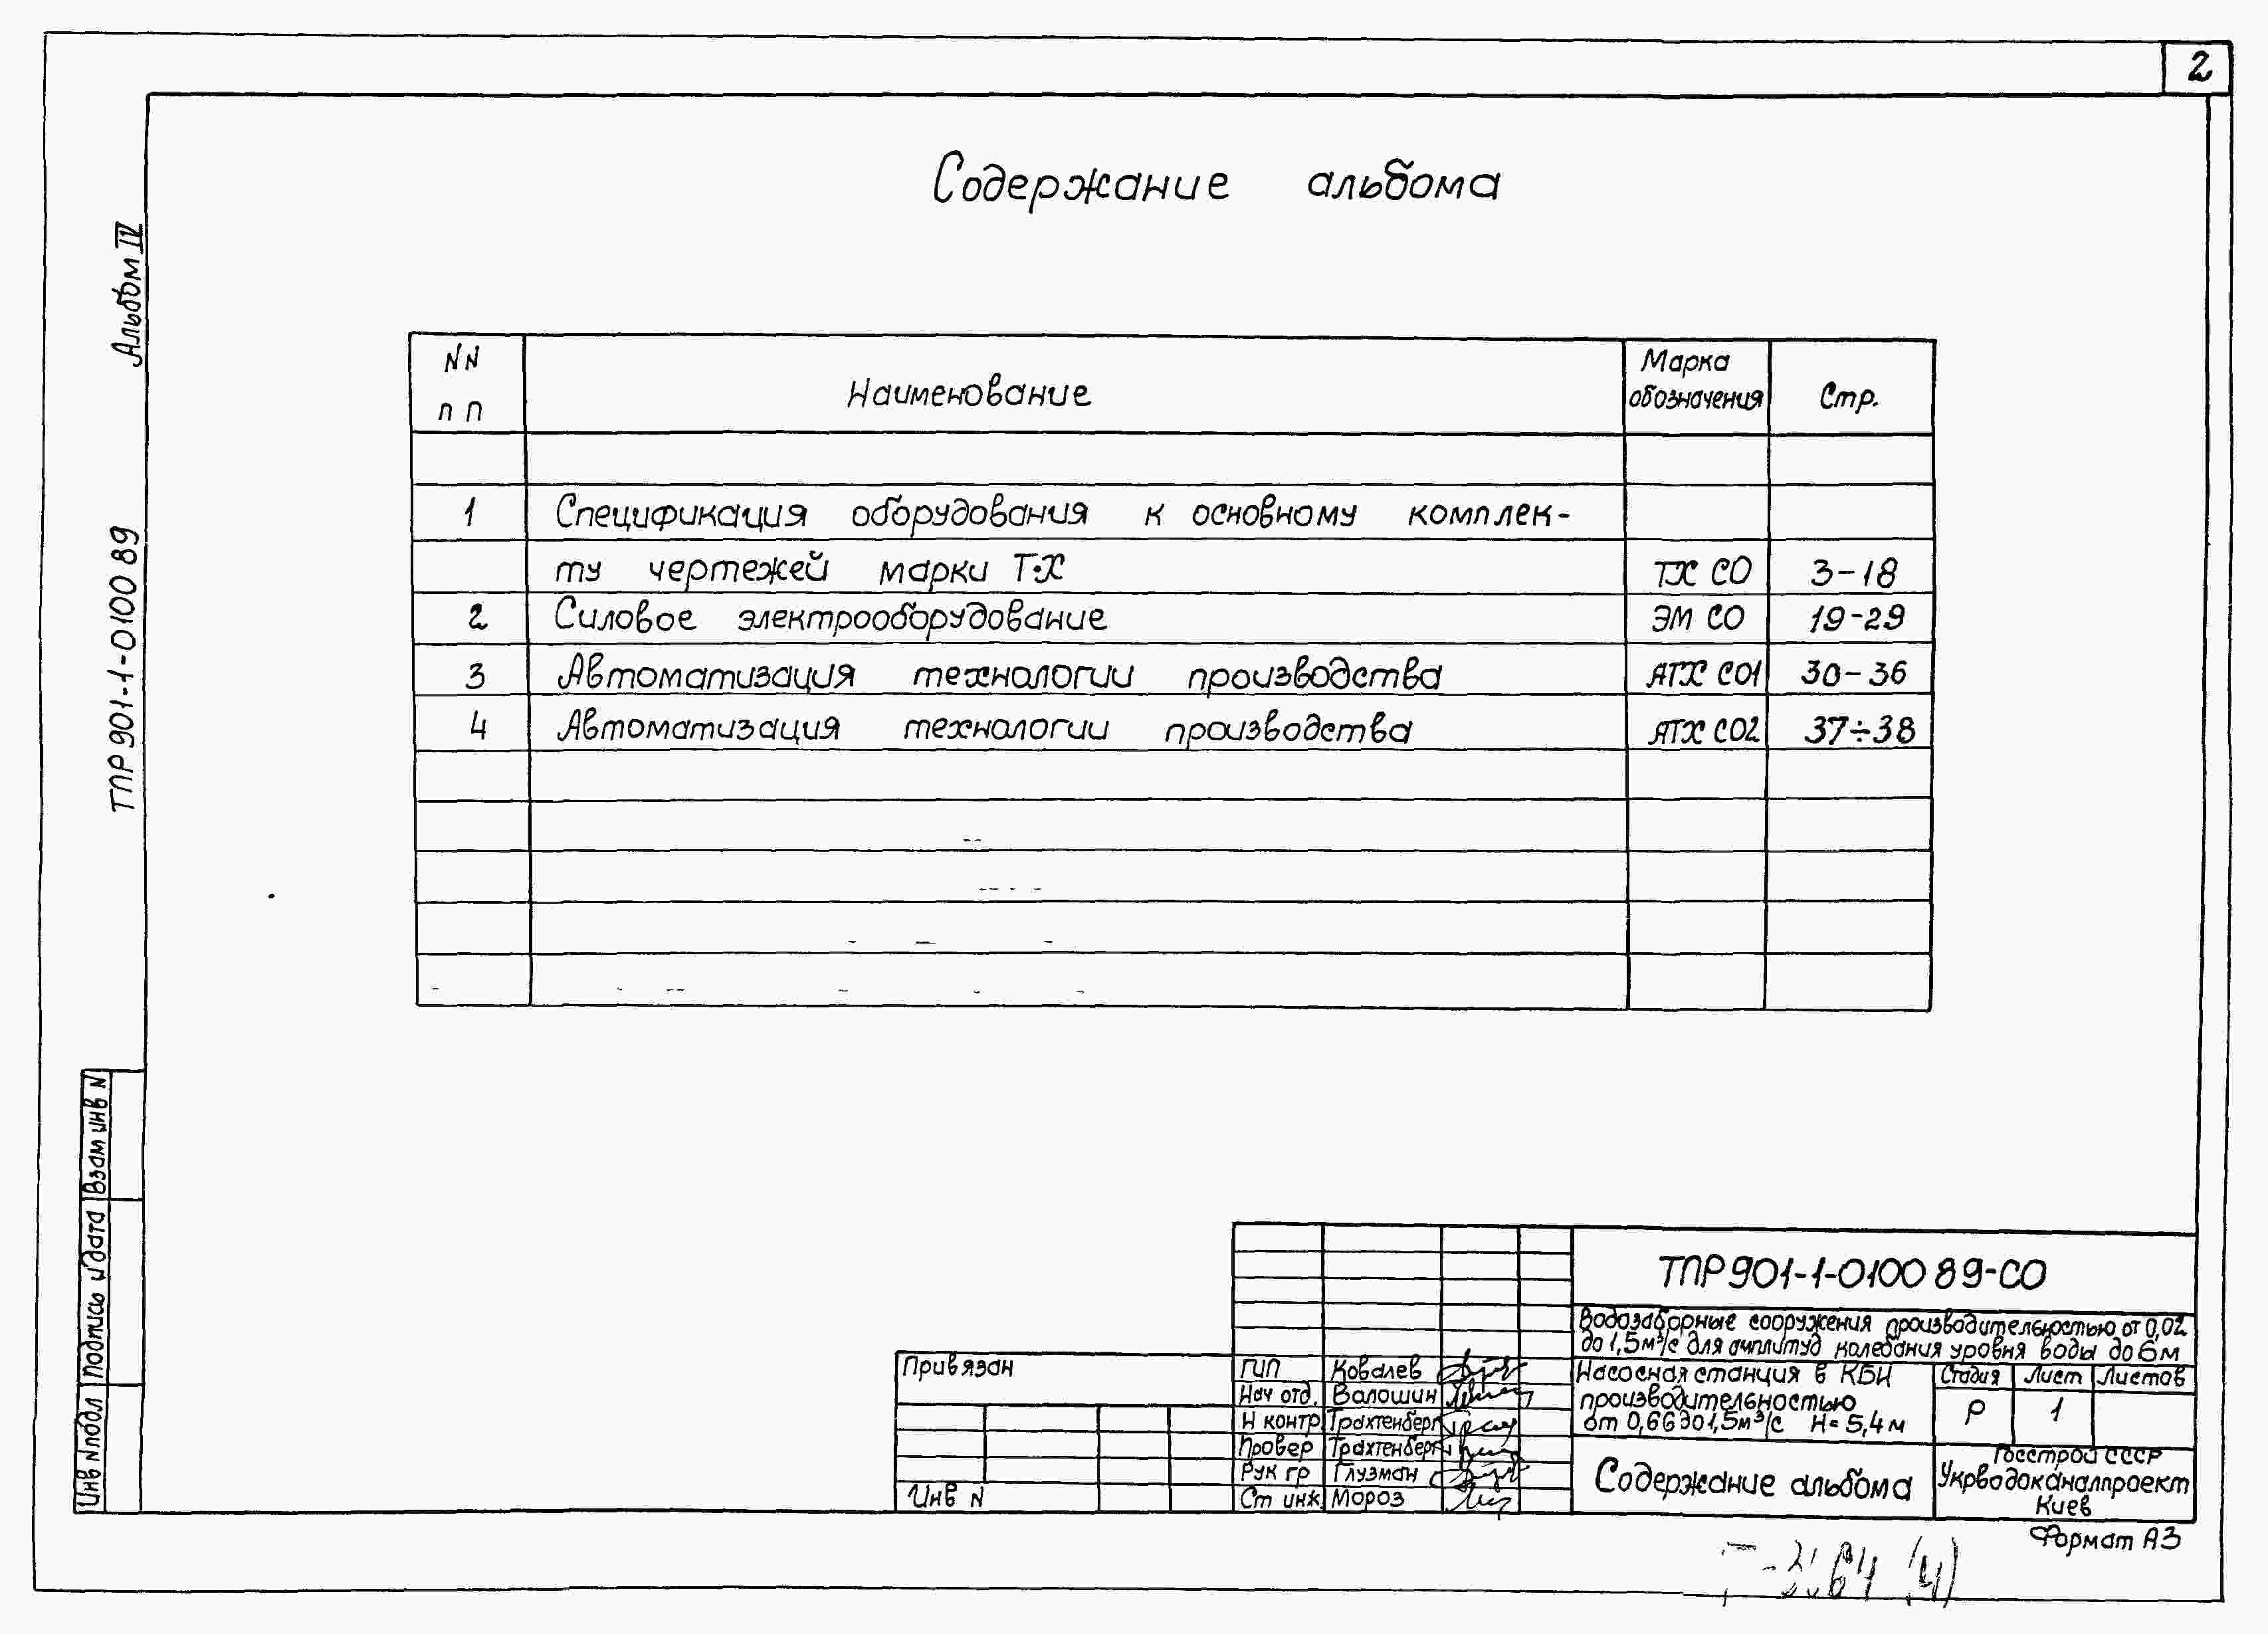 2
Содержание альбома
Альбом IV
ТПР 901-1-0100 89
NN Наименование Марка Стр.
п п обозначения
1 Спецификация оборудования к основному комплек-
ту чертежей марки ТХ ТХ СО 3-18
2 Силовое электрооборудование ЭМ СО 19-29
3 Автоматизация технологии производства АТХ СО1 30-36
4 Автоматизация технологии производства АТХ СО2 37÷38
Взам инв N
Подпись и дата
Инв N подл
ТПР 901-1-0100 89-СО
Водозаборные сооружения производительностью от 0,02
до 1,5м³/с для амплитуд колебания уровня воды до 6м
Привязан
Инв N
ГИП Ковалев
Нач отд. Валошин
Н контр Трахтенберг
Провер Трахтенберг
Рук гр Глузман
Ст инж Мороз
Насосная станция в КБИ
производительностью
от 0,66 до 1,5м³/с Н=5,4м
Стадия Лист Листов
Р 1
Содержание альбома
Госстрой СССР
Укрводоканалпроект
Киев
Формат А3